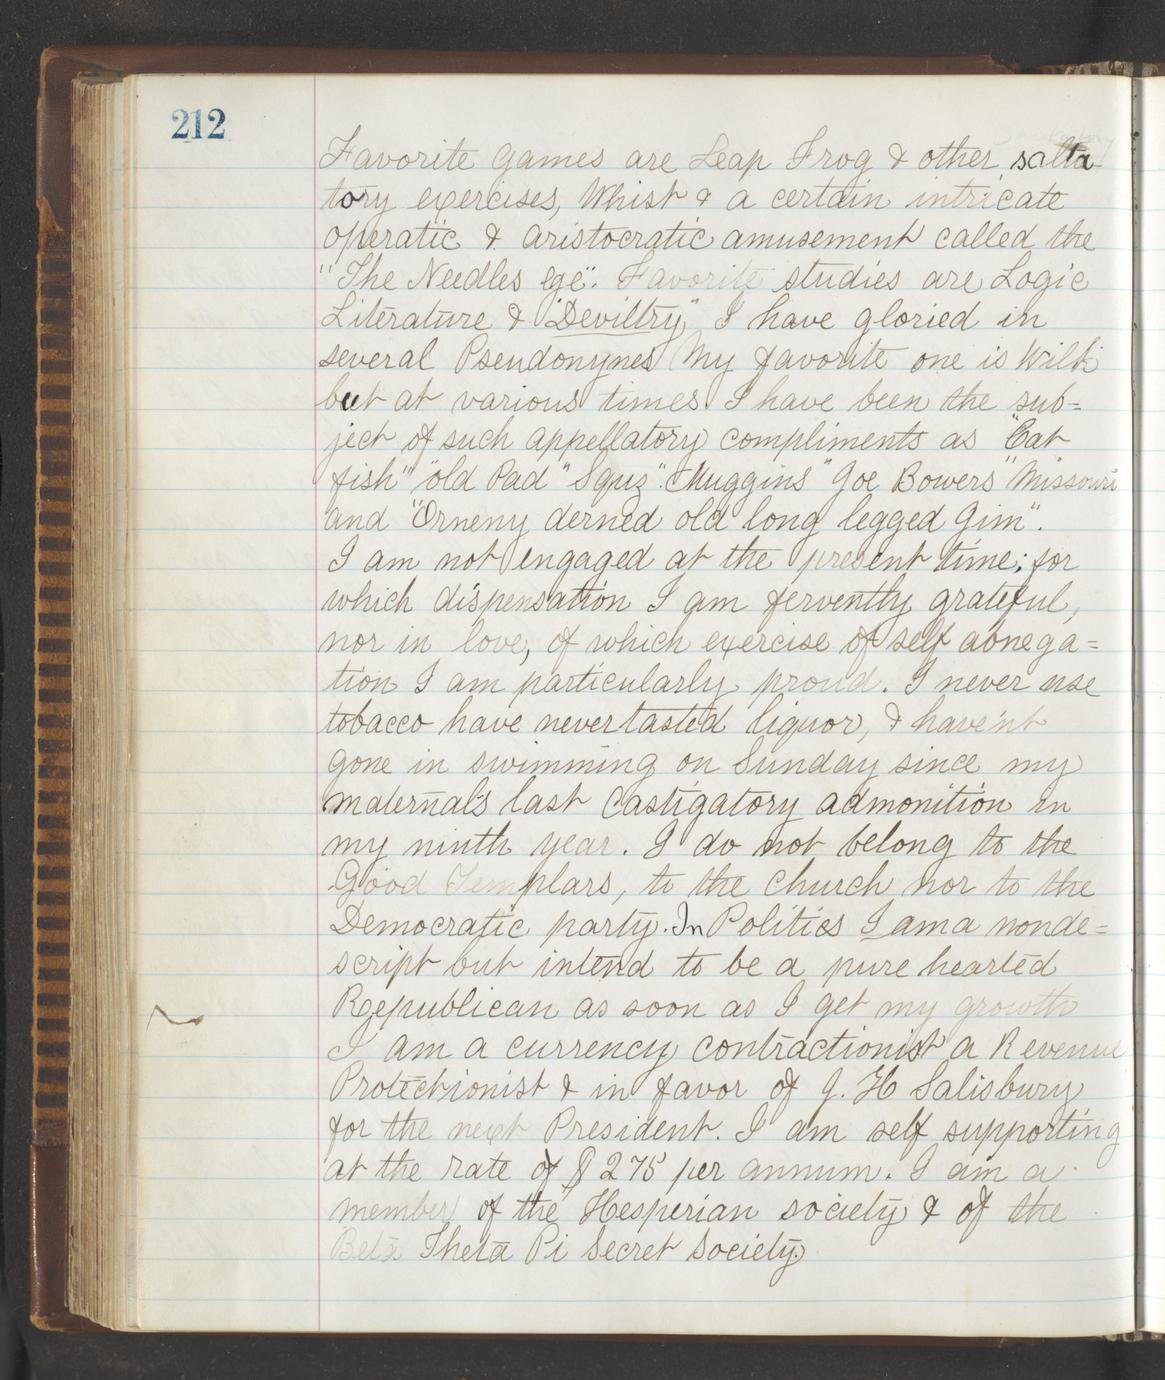 212
Favorite games are Leap Frog & other salta-
tory exercises, Whist & a certain intricate
operatic & aristocratic amusement called the
"The Needles eye". Favorite studies are Logic
Literature & "Deviltry" I have gloried in
several Pseudonynes My favorite one is Wilk
but at various times I have been the sub=
ject of such appellatory compliments as "Cat
fish" "old Pad" "Squz". Muggins" Joe Bowers" Missouri
and "Orneny derned old long legged Jim".
I am not engaged at the present time; for
which dispensation I am fervently grateful,
nor in love, of which exercise of self abnega=
tion I am particularly proud. I never use
tobacco have never tasted liquor, & have'nt
gone in swimming on Sunday since my
maternal's last castigatory admonition in
my ninth year. I do not belong to the
Good Templars, to the church nor to the
Democratic party. In Politics I am a nonde=
script but intend to be a pure hearted
Republican as soon as I get my growth
I am a currency contractionist a Revenue
Protectionist & in favor of J. H Salisbury
for the next President. I am self supporting
at the rate of $275 per annum. I am a
member of the Hesperian society & of the
Beta Theta Pi Secret Society.